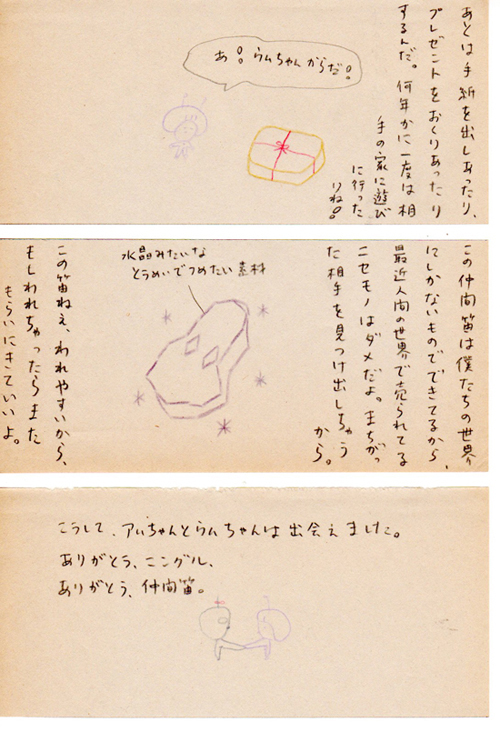 あとは手紙を出しあったり、
プレゼントをおくりあったり
するんだ。何年かに一度は相
手の家に遊び
に行った
りね!
あ!ラムちゃんからだ!
この仲間笛は僕たちの世界
にしかないものでできてるから、
最近人間の世界で売られてる
ニセモノはダメだよ。まちがっ
た相手を見つけ出しちゃう
から。
水晶みたいな
とうめいでつめたい素材
この笛ねえ、われやすいから、
もしわれちゃったらまた
もらいにきていいよ。
こうして、アムちゃんとラムちゃんは出会えました。
ありがとう、ニングル、
ありがとう、仲間笛。